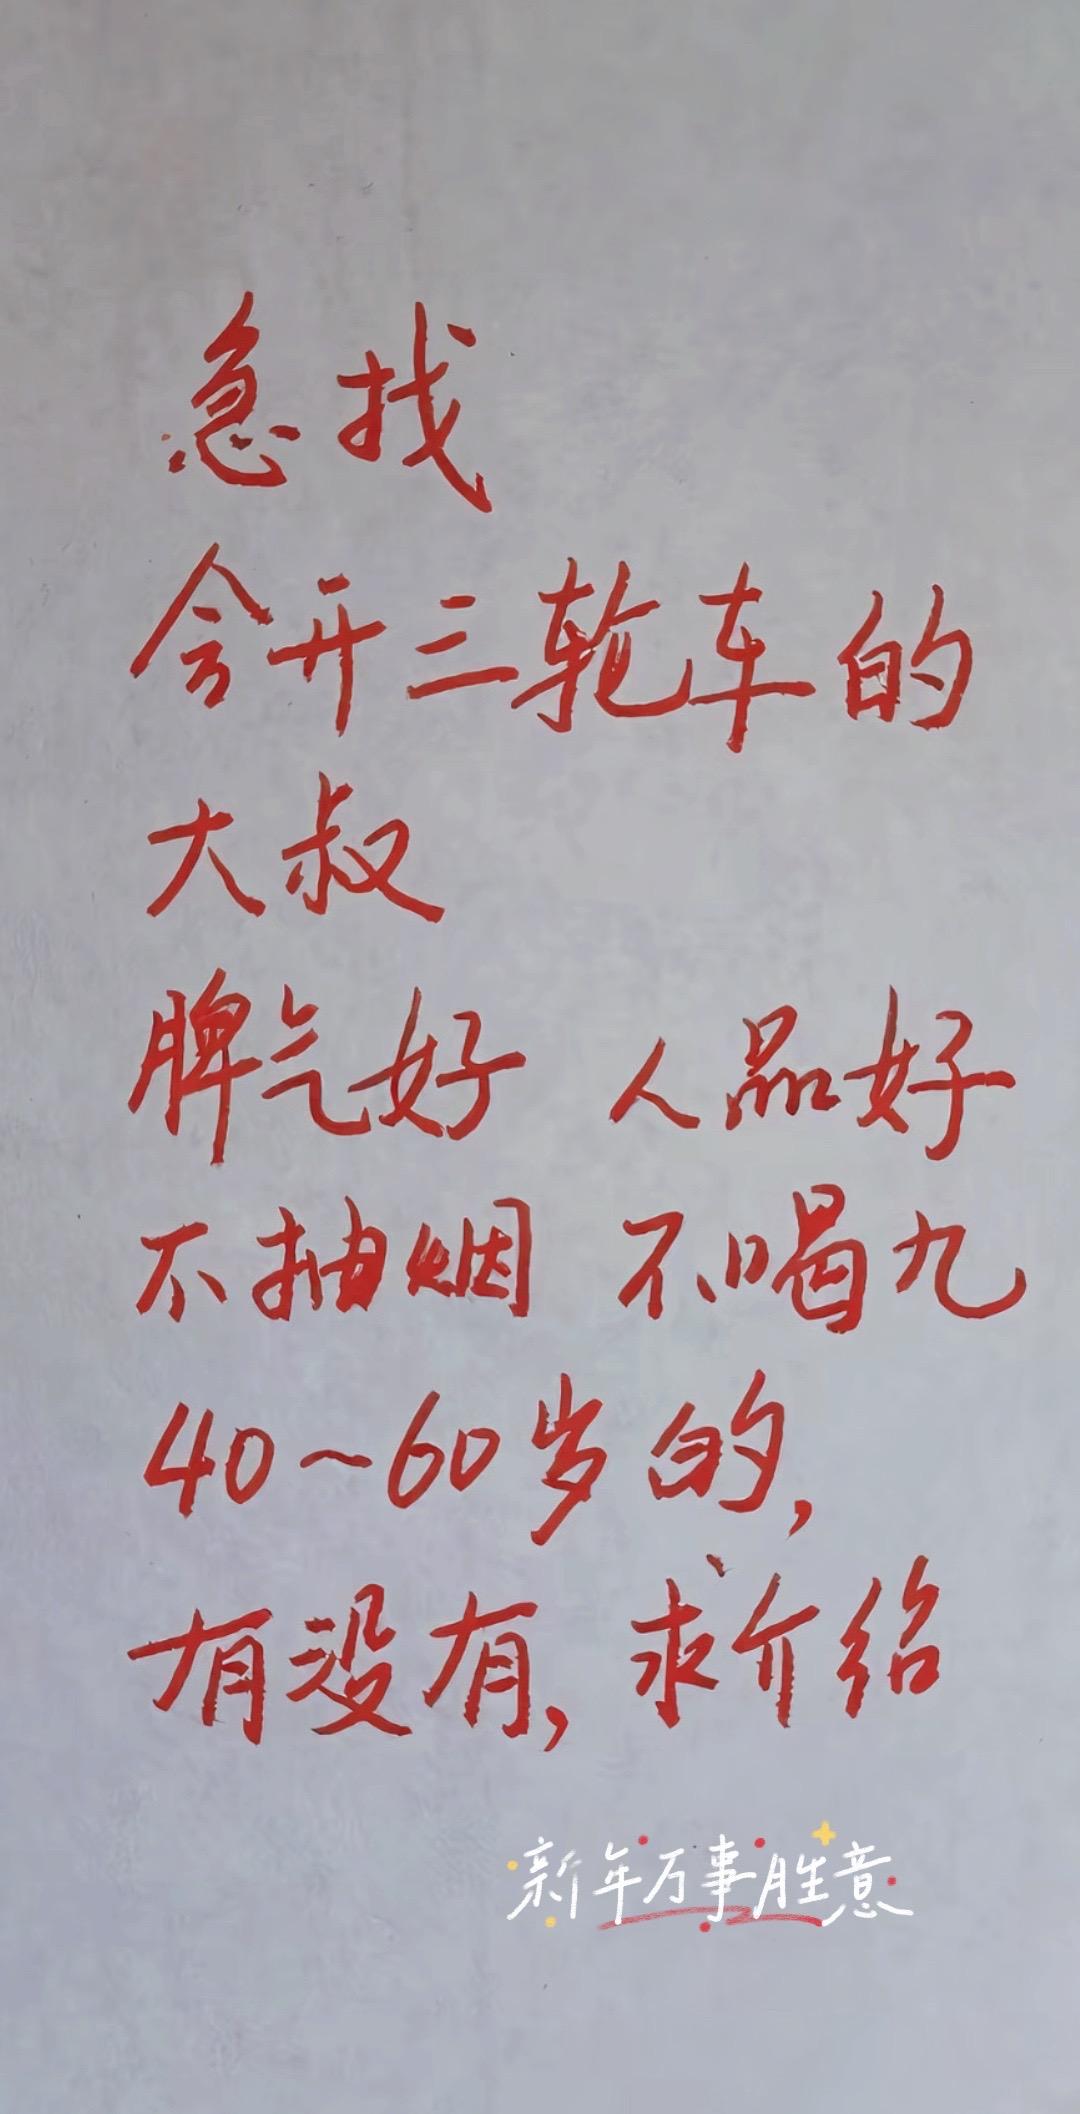 急找
会开三轮车的
大叔
脾气好 人品好
不抽烟 不喝九
40~60岁的,
有没有,求介绍
新年万事胜意